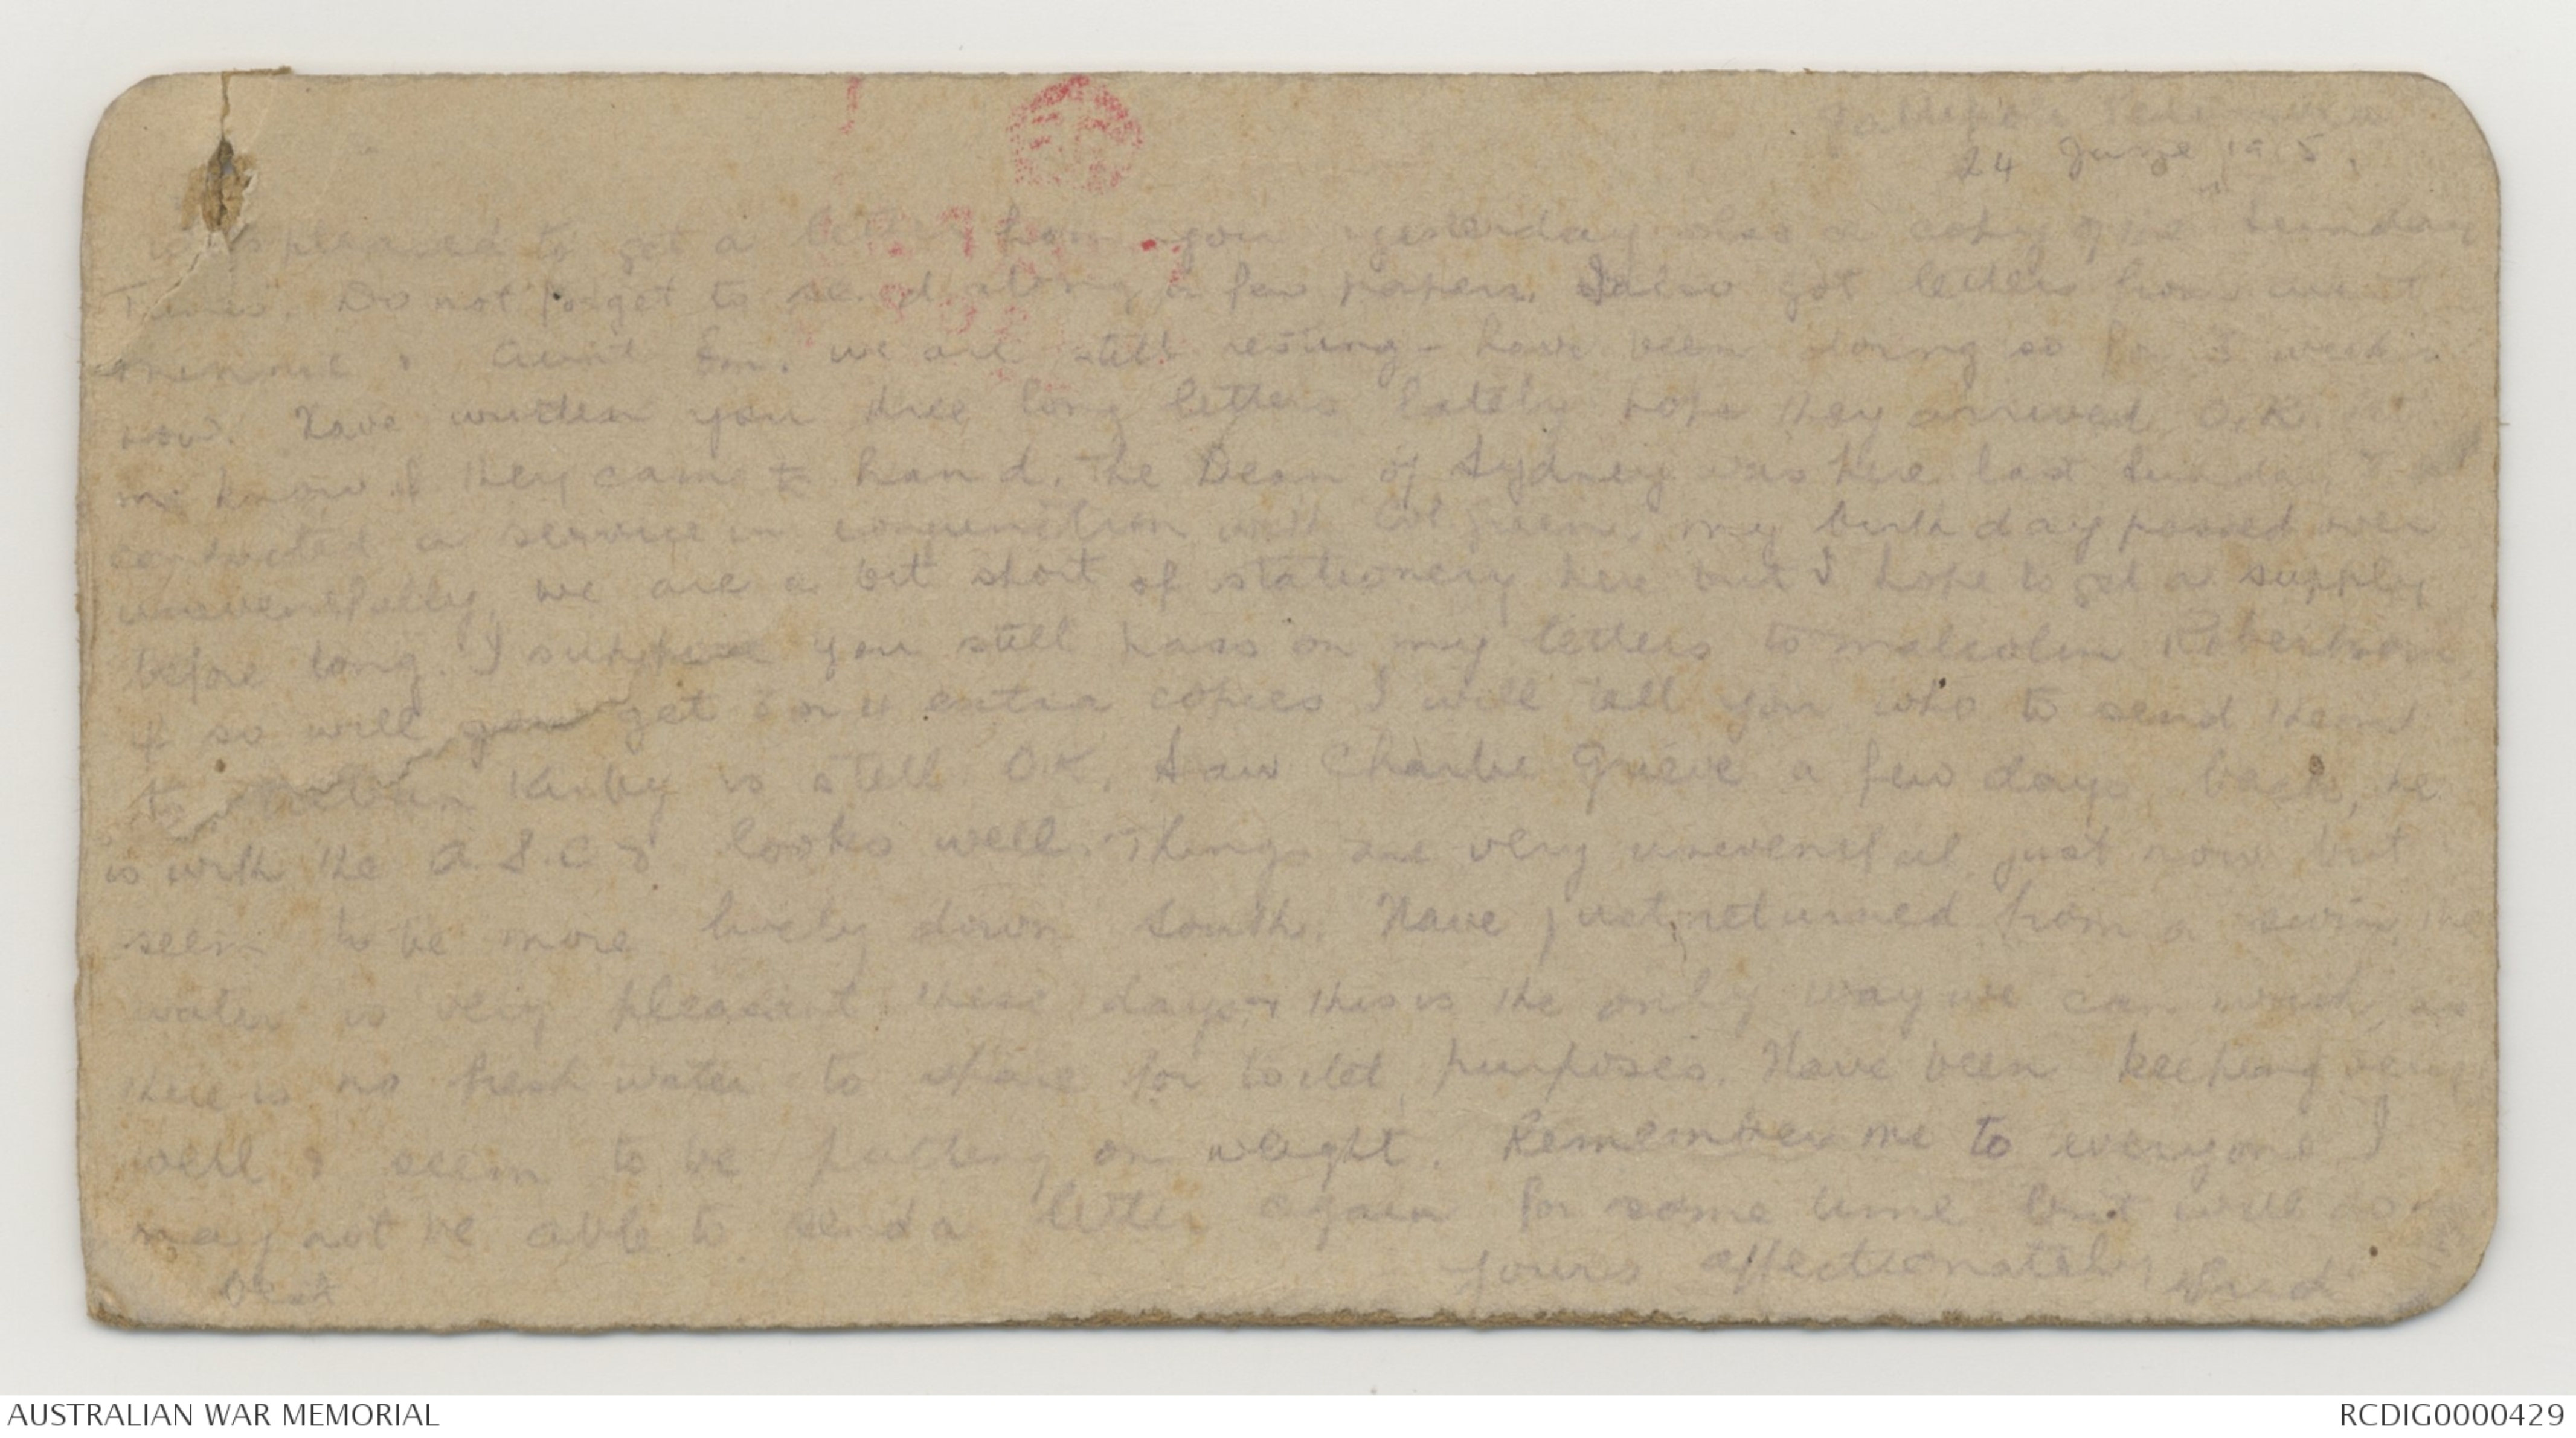 Gallipoli Peninsula
24 June 1915.
was pleased to get a letter from you yesterday also a copy of the Sunday
Times. Do not forget to send along a few papers. I also got letters from aunt
& Aunt Em. we are still resting - have been doing so for 3 weeks
now. Have written you three long letters lately hope they arrived O.K. let
me know if they came to hand. The Dean of Sydney was here last Sunday &
conducted a service in conjunction with Col Green. my birthday passed over
uneventfully, we are a bit short of stationery here but I hope to get a supply
before long. I suppose you still pass on my letters to Malcolm Robertson,
if so will you get 3 or 4 extra copies I will tell you who to send them
to Kirby is still O.K. Saw Charlie Grieve a few days back, he
is with the A.S.C & looks well. Things are very uneventful just now but
seem to be more lively down South. Have just returned from a swim, the
water is very pleasant these days & this is the only way we can wash as
there is no fresh water to spare for toilet purposes. Have been keeping very
well & seem to be putting on weight. Remember me to everyone I
may not be able to send a letter again for some time but will do
best
Yours affectionately
AUSTRALIAN WAR MEMORIAL
RCDIG0000429